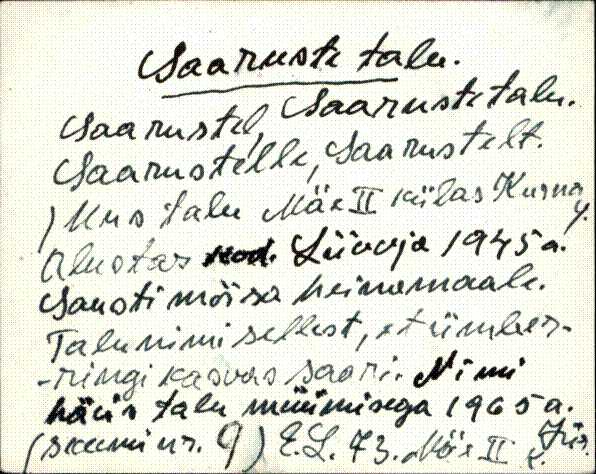 Saaruste talu.
Saarustel, Saaruste talu.
Saarustelle, Saarustelt.
) Uus talu Mäe II külas Kurna
Alustas Liivoja 1945 a.
Sausti mõisa heinamaale.
Talu nimi sellest, et ümber-
-ringi kasvas saari. Nimi
häv talu müümisega 1965 a.
(skeemi nr. 9) E.L. 73. Mäe II Jür.